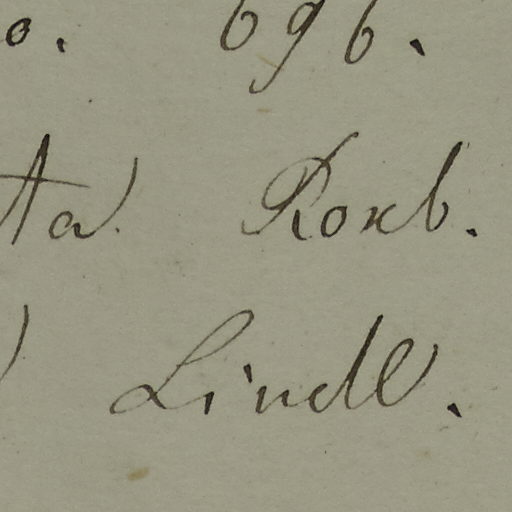 o. 696.
ta Roxb.
) Lindl.